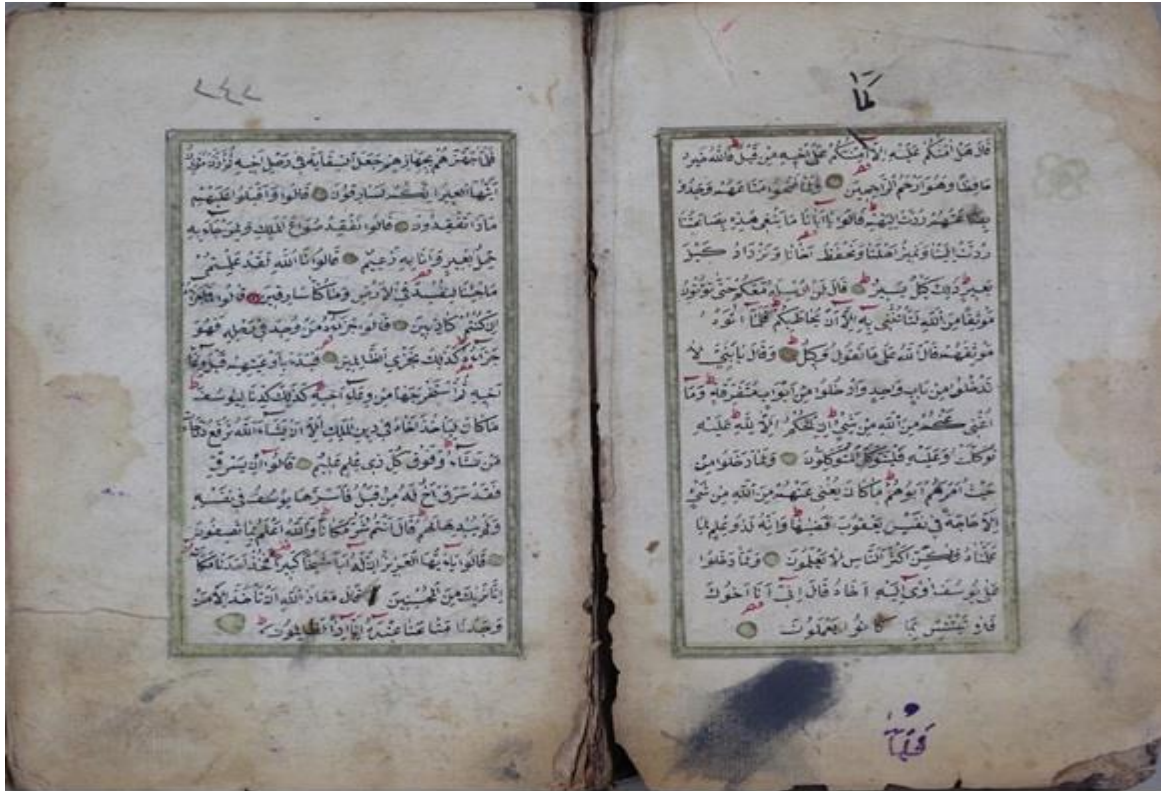 كما
قال هل امنكم عليه الا امنتكم على اخيه من قبل فالله خير
حافظا وهو ارحم الراحمين ولما فتحوا متاعهم وجدوا
بضاعتهم ردت اليهم قالوا يا ابانا ما نبغى هذه بضاعتنا
ردت الينا ونمير اهلنا ونحفظ اخانا ونزداد كيل
بعير ذلك كيل يسير قال لن ارسله معكم حتى تؤتون
موثقا من الله لتأتننى به الا ان يحاط بكم فلما اتوه
موثقهم قال الله على ما نقول وكيل وقال يا بنى لا
تدخلوا من باب واحد وادخلوا من ابواب متفرقة وما
اغنى عنكم من الله من شئ ان الحكم الا لله عليه
توكلت وعليه فليتوكل المتوكلون ولما دخلوا من
حيث امرهم ابوهم ما كان يغنى عنهم من الله من شئ
الا حاجة فى نفس يعقوب قضيها وانه لذو علم لما
علمناه ولكن اكثر الناس لا يعلمون ولما دخلوا
على يوسف اوى اليه اخاه قال انى انا اخوك
فلا تبتئس بما كانوا يعملون
فلما
فلما جهزهم بجهازهم جعل السقاية فى رحل اخيه ثم اذن مؤذن
ايتها العير انكم لسارقون قالوا واقبلوا عليهم
ماذا تفقدون قالوا نفقد صواع الملك ولمن جاء به
حمل بعير وانا به زعيم قالوا تالله لقد علمتم
ما جئنا لنفسد فى الارض وما كنا سارقين قالوا فما جزاؤه
ان كنتم كاذبين قالوا جزاؤه من وجد فى رحله فهو
جزاؤه كذلك نجزى الظالمين فبدء باوعيتهم قبل وعاء
اخيه ثم استخرجها من وعاء اخيه كذلك كدنا ليوسف
ما كان ليأخذ اخاه فى دين الملك الا ان يشاء الله نرفع درجات
من نشاء وفوق كل ذى علم عليم قالوا ان يسرق
فقد سرق اخ له من قبل فاسرها يوسف فى نفسه
ولم يبدها لهم قال انتم شر مكانا والله اعلم بما تصفون
قالوا يا ايها العزيز ان له ابا شيخا كبيرا فخذ احدنا مكانه
انا نريك من المحسنين قال معاذ الله ان نأخذ الا من
وجدنا متاعنا عنده انا اذا لظالمون